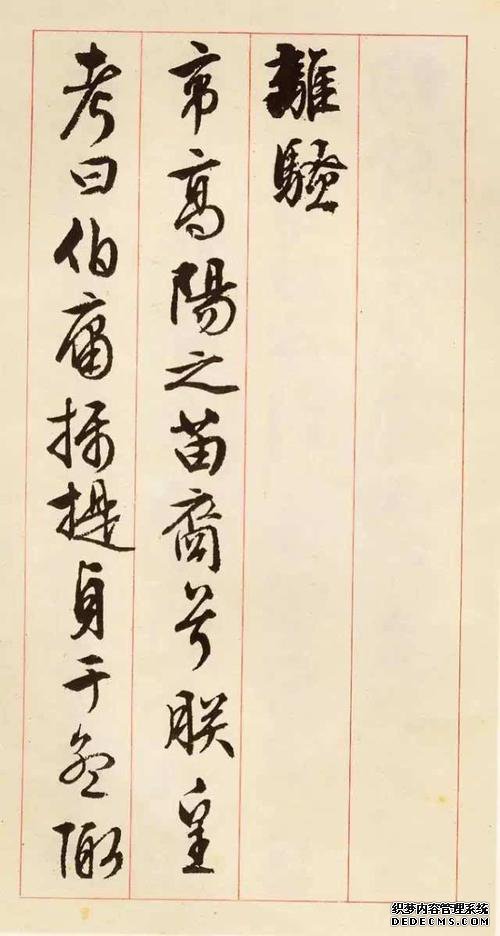 離騷
帝高陽之苗裔兮朕皇
考曰伯庸攝提貞于孟陬
织梦内容管理系统
DEDECMS.COM